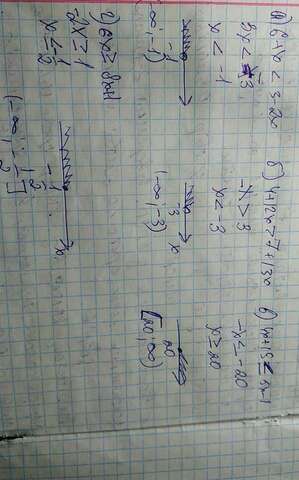 а) 6+x < 3-2x
3x < -3
x < -1
-1
(-∞; -1)
б) 4+12x > 7+13x
-x > 3
x < -3
-3
x
(-∞; -3)
-x ≤ -20
x ≥ 20
20
[20; ∞)
г) 6x ≥ 8x+1
-2x ≥ 1
x ≤ -1/2
-1/2
x
(-∞; -1/2]